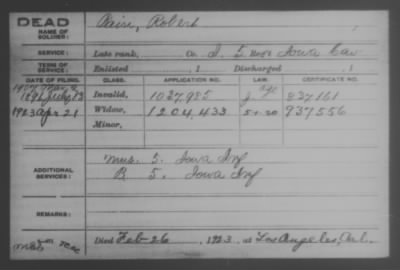 DEAD
NAME OF SOLDIER: Robert
SERVICE: Late rank, Co. I. 5 Reg't Iowa Cav
TERM OF SERVICE: Enlisted , 1 Discharged , 1
DATE OF FILING. CLASS. APPLICATION NO. LAW. CERTIFICATE NO.
Invalid, 1037,985 age 837161
1923 Apr 21 Widow, 1204,433 5-1-20 937556
Minor,
ADDITIONAL SERVICES: Mus. 5. Iowa Inf
B 5. Iowa Inf
REMARKS:
Died Feb-26, 1923, at Los Angeles, Cal.